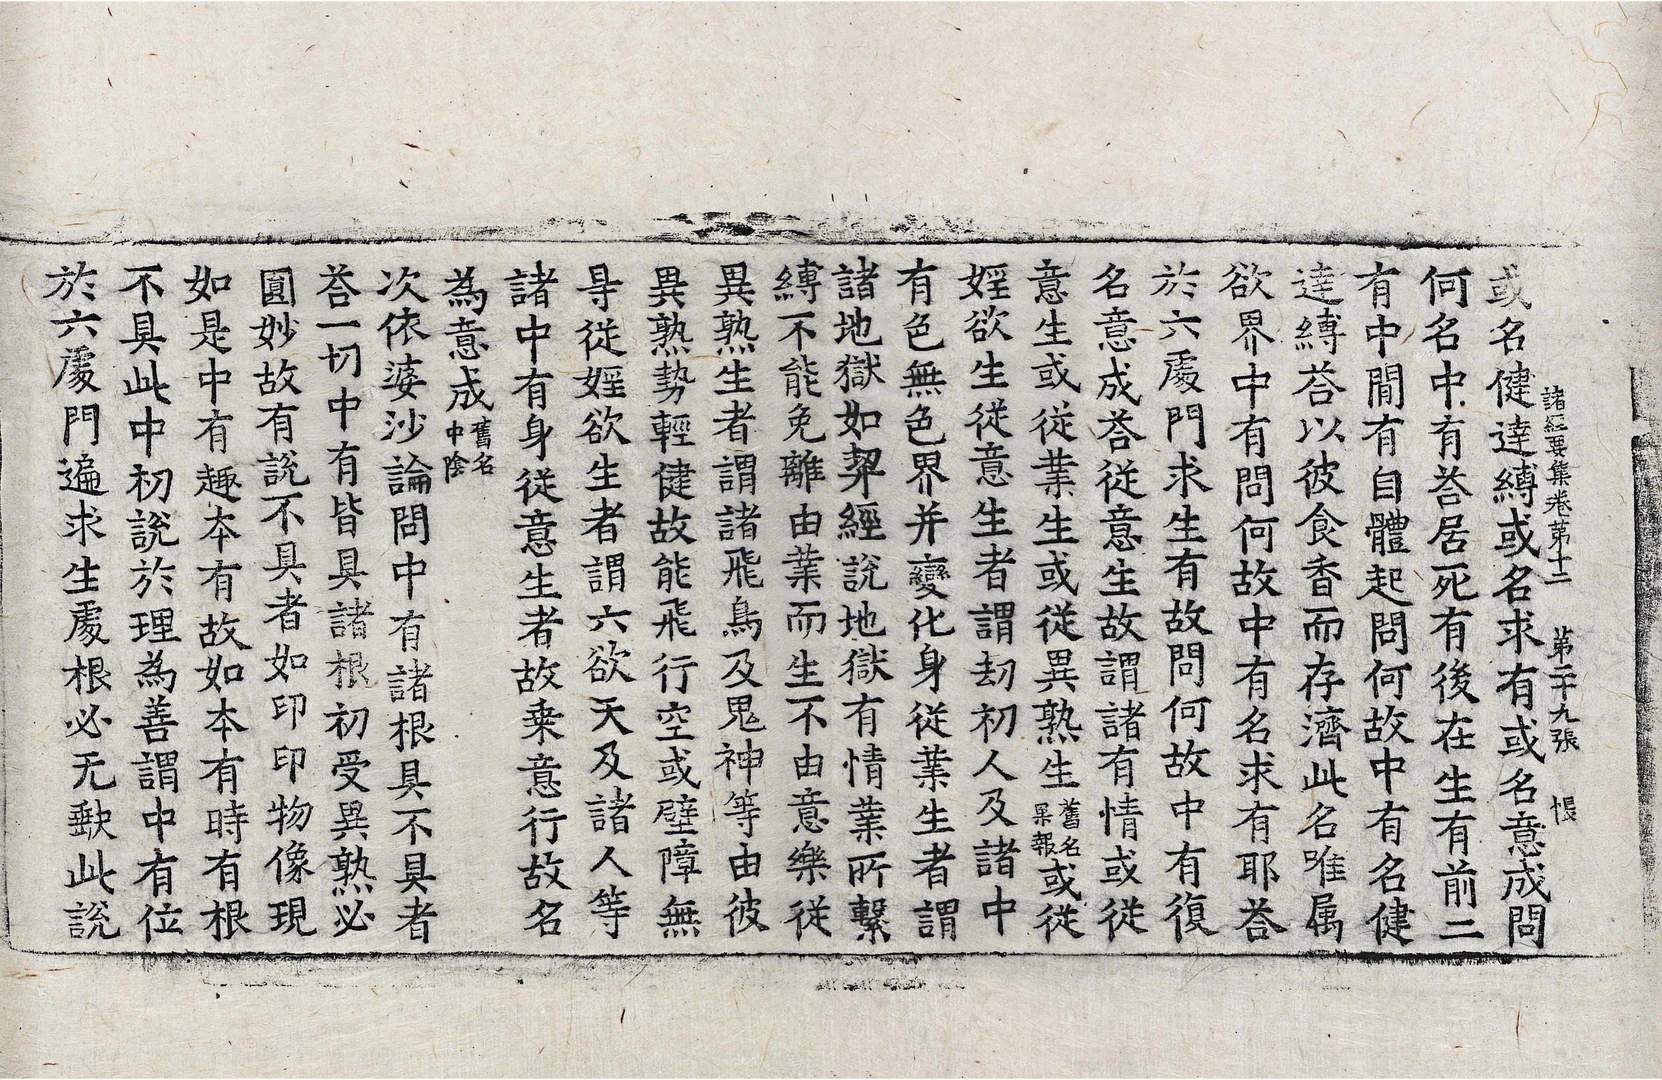 諸經要集卷第十二 第二十九張 悵
或名健達縛或名求有或名意成問
何名中有荅居死有後在生有前二
有中間有自體起問何故中有名健
達縛荅以彼食香而存濟此名唯属
欲界中有問何故中有名求有耶荅
於六處門求生有故問何故中有復
名意成荅從意生故謂諸有情或從
意生或從業生或從異熟生舊名果報或從
婬欲生從意生者謂劫初人及諸中
有色無色界并變化身從業生者謂
諸地獄如契經說地獄有情業所繫
縛不能免離由業而生不由意樂從
異熟生者謂諸飛鳥及鬼神等由彼
異熟勢輕健故能飛行空或壁障無
㝵從婬欲生者謂六欲天及諸人等
諸中有身從意生者故乗意行故名
為意成舊名中陰
次依婆沙論問中有諸根具不具者
荅一切中有皆具諸根初受異熟必
圓妙故有說不具者如印印物像現
如是中有趣本有故如本有時有根
不具此中初說於理為善謂中有位
於六處門遍求生處根必无𡙇此說